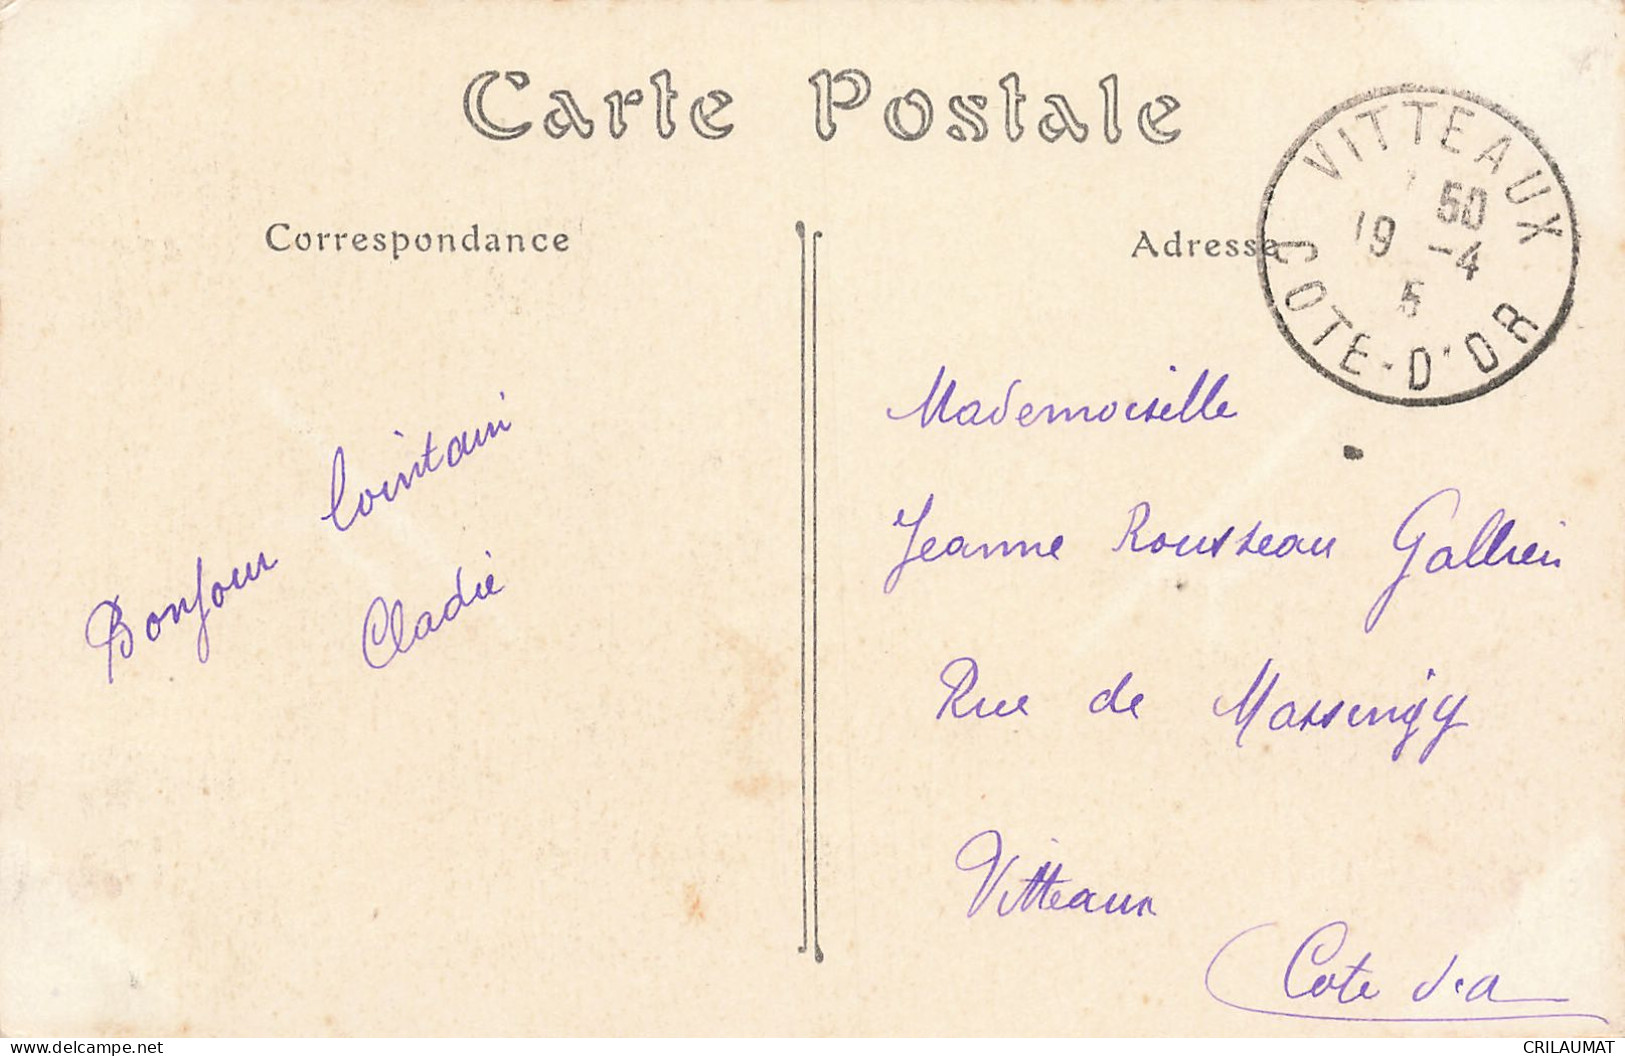 Carte Postale
Correspondance
Adresse
VITTEAUX
50
19 -4
5
COTE-D'OR
Bonjour lointain
Cladie
Mademoiselle
Jeanne Rousseau Gallien
Rue de Massingy
Vitteaux
Cote d'or
delcampe.net
CRILAUMAT